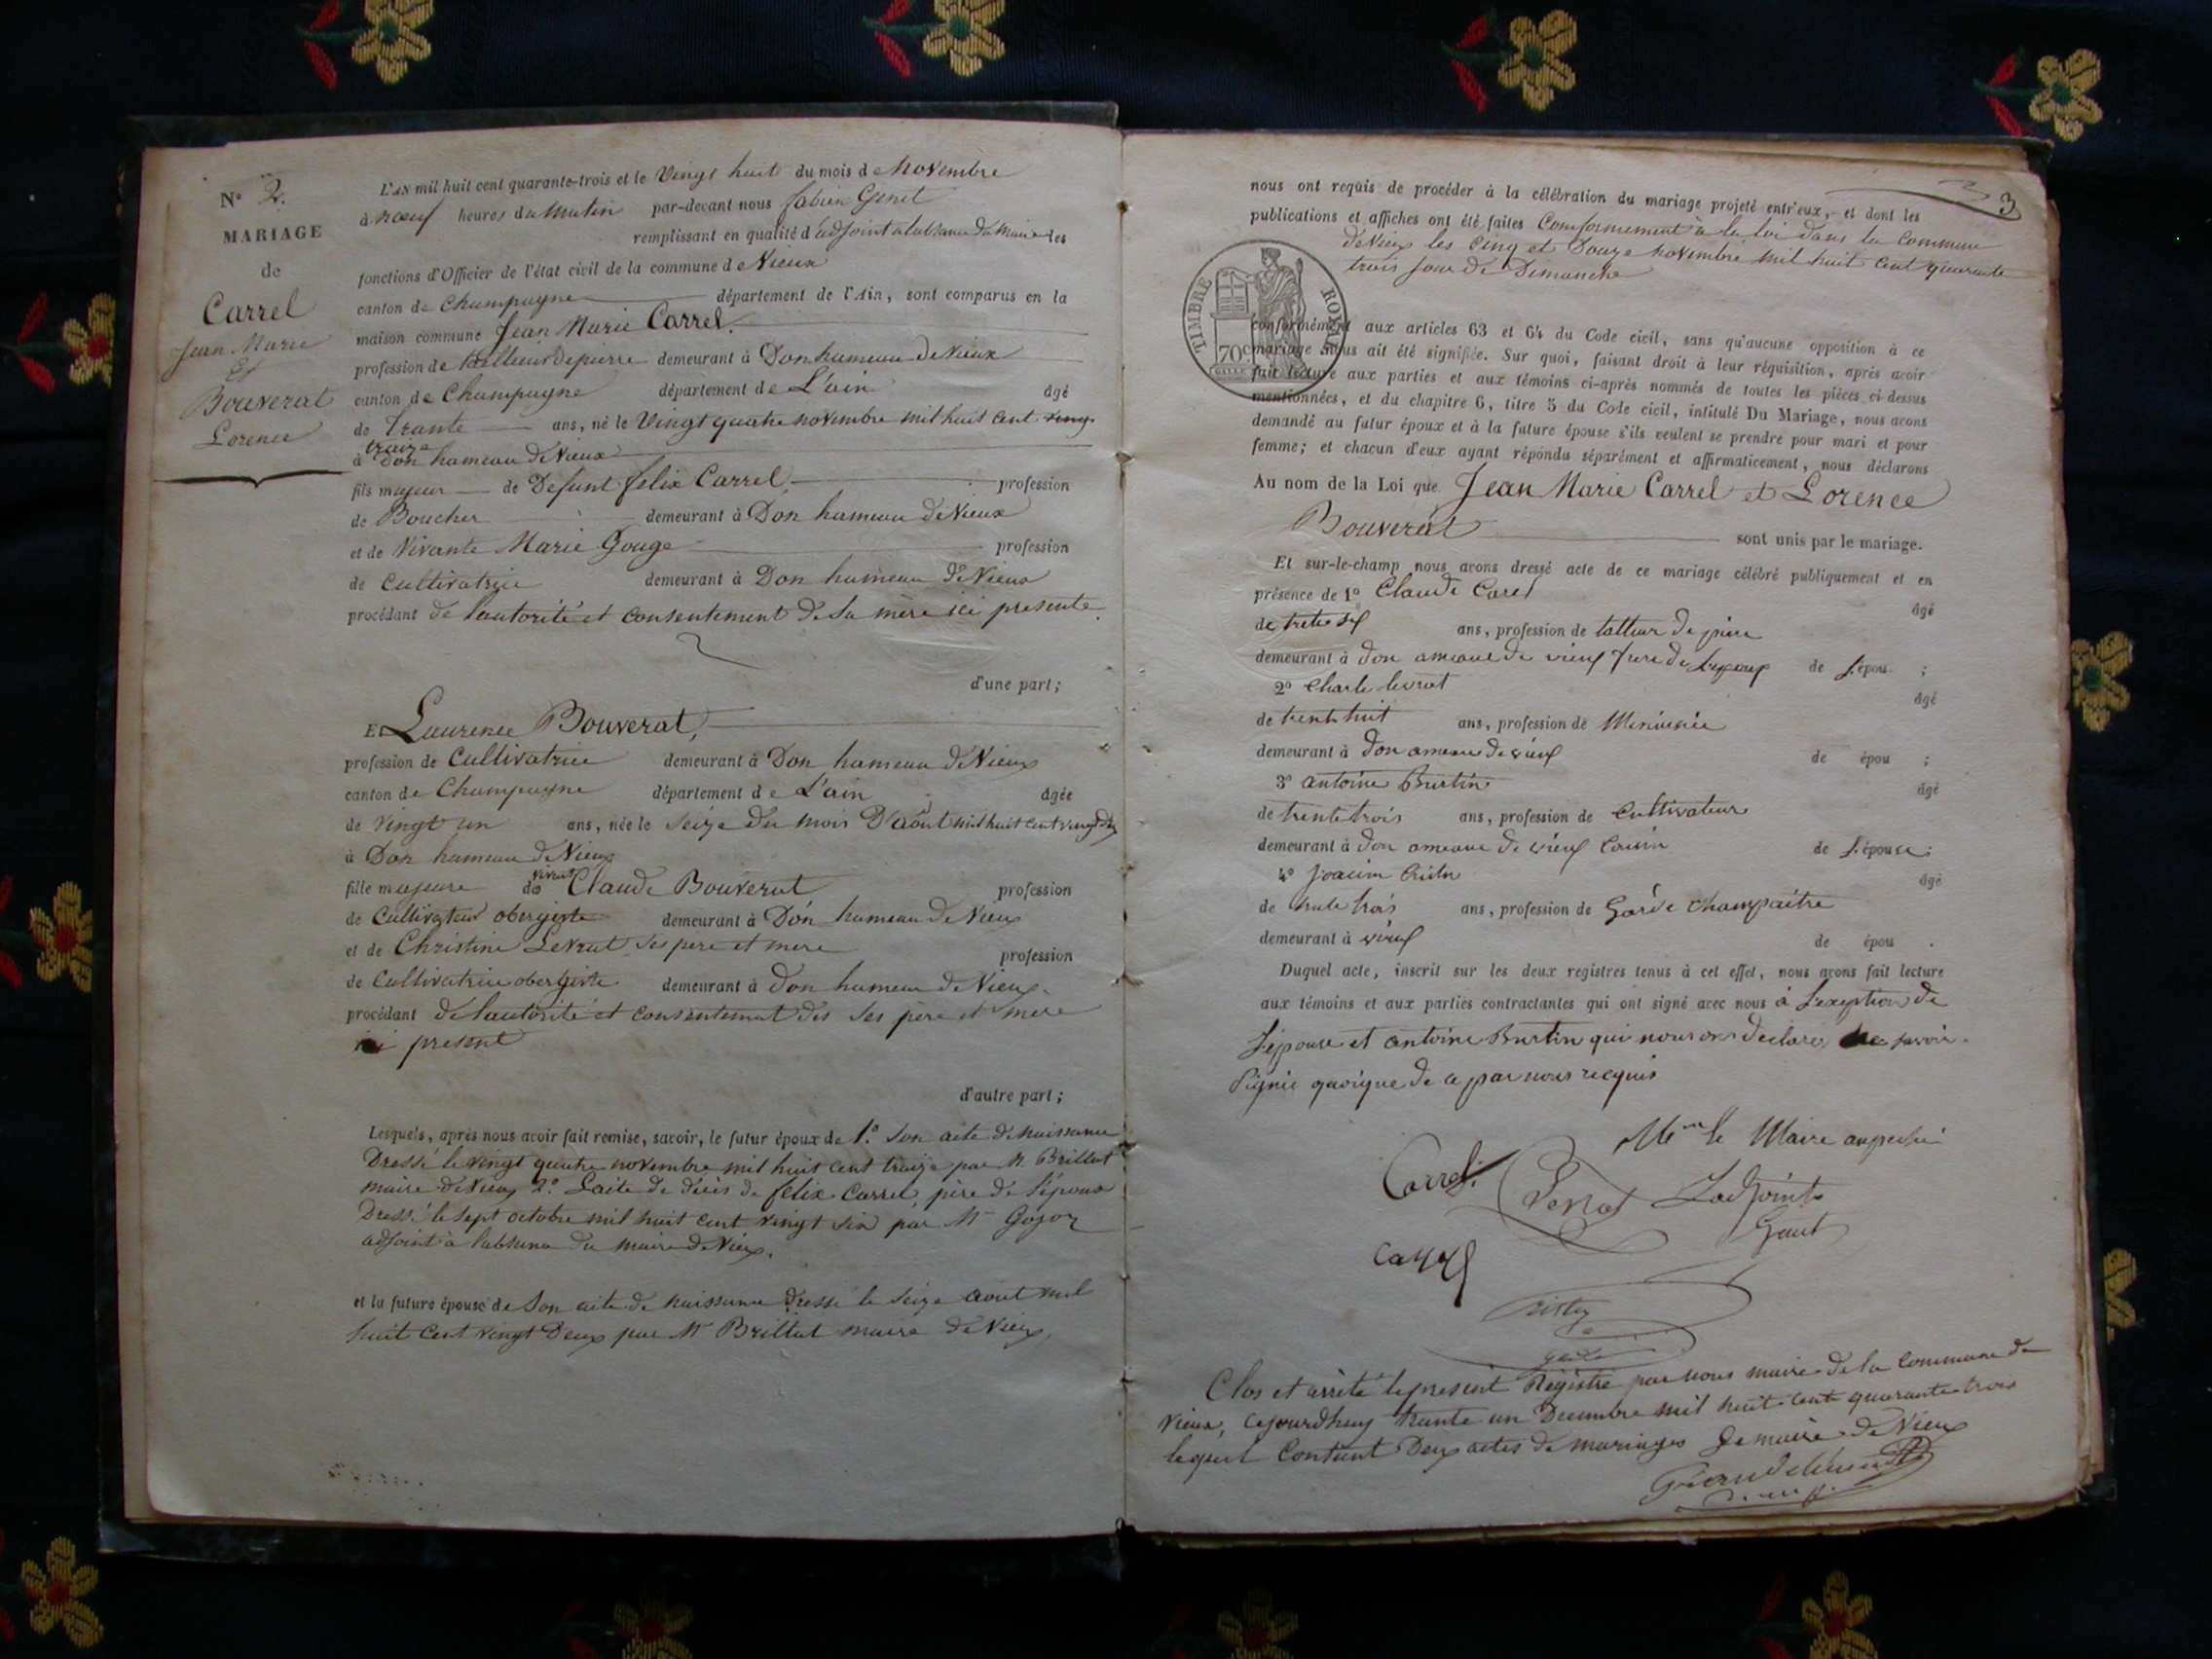 N° 2.
MARIAGE
de
Carrel
Jean Marie
Et
Bouverat
Lorence
L'AN mil huit cent quarante-trois et le Vingt huit du mois de Novembre
à neuf heures du Matin par-devant nous fabien Genet
remplissant en qualité d'adjoint a labsance du Maire les
fonctions d'Officier de l'état civil de la commune de Vieux
canton de Champagne département de l'Ain, sont comparus en la
maison commune Jean Marie Carrel.
profession de tallieur de pierre demeurant à Don hameau de Vieux
canton de Champagne département de L'ain âgé
de Trante ans, né le Vingt quatre novembre mil huit cent
traize
à Don hameau de Vieux
fils majeur de Defunt felix Carrel profession
de Boucher demeurant à Don hameau de Vieux
et de Vivante Marie Gouge profession
de Cultivatrice demeurant à Don hameau de Vieux
procédant de l'autorité et consentement de sa mère ici presente.
d'une part;
Et Laurence Bouverat,
profession de Cultivatrice demeurant à Don hameau de Vieux
canton de Champagne département de L'ain âgée
de Vingt un ans, née le Seize du mois D'aout mil huit cent vingt deux
à Don hameau de Vieux
fille majeure de vivant Claude Bouverat profession
de Cultivateur obergiste demeurant à Don hameau de Vieux
et de Christine Levrat ses pere et mere profession
de Cultivatrice obergiste demeurant à Don hameau de Vieux.
procédant de l'autorité et consentement des ses père et mere
ici present
d'autre part;
Lesquels, après nous avoir fait remise, savoir, le futur époux de 1.° Son acte de naissance
Dressé le vingt quatre novembre mil huit cent traize par Mr Brillat
maire de Vieux 2.° Lacte de décès de felix Carrel père de l'époux
Dressé le sept octobre mil huit cent vingt six par Mr Gojoz
adjoint à l'absence du maire de Vieux.
et la future épouse de Son acte de naissance dressé le seize aout mil
huit cent vingt Deux par Mr Brillat maire de Vieux
3
nous ont requis de procéder à la célébration du mariage projeté entr'eux, et dont les
publications et affiches ont été faites Conformement à la loi dans la Commune
de Vieux les cinq et Douze novembre mil huit cent quarante
trois jour de Dimanche
TIMBRE ROYAL
70c
conformément aux articles 63 et 64 du Code civil, sans qu'aucune opposition à ce
mariage nous ait été signifiée. Sur quoi, faisant droit à leur réquisition, après avoir
fait lecture aux parties et aux témoins ci-après nommés de toutes les pièces ci-dessus
mentionnées, et du chapitre 6, titre 5 du Code civil, intitulé Du Mariage, nous avons
demandé au futur époux et à la future épouse s'ils veulent se prendre pour mari et pour
femme; et chacun d'eux ayant répondu séparément et affirmativement, nous déclarons
Au nom de la Loi que Jean Marie Carrel et Lorence
Bouverat sont unis par le mariage.
Et sur-le-champ nous avons dressé acte de ce mariage célébré publiquement et en
présence de 1° Claude Carel âgé
de ans, profession de talleur de piere
demeurant à don ameaue de vieux frere de de l'épou ;
2° Charle levrat âgé
de trente huit ans, profession de Menuisiée
demeurant à don ameaue de vieux de épou ;
3° antoine Burtin âgé
de trente trois ans, profession de Cultivateur
demeurant à don ameaue de vieux Cousin de l'épouse;
4° Joacim âgé
de trente trois ans, profession de Garde champaître
demeurant à vieux de épou .
Duquel acte, inscrit sur les deux registres tenus à cet effet, nous avons fait lecture
aux témoins et aux parties contractantes qui ont signé avec nous à l'exeption de
l'epouse et antoine Burtin qui nous on declarer ne savoir
signié quoique de ce par nous requis
Mr le Maire
Carrel
Ladjoint
Carrel
garde
Clos et arrêté le present Régistre par nous maire de la Commune de
Vieux, cejourdhuy trante un Decembre mil huit cent quarante trois
lequel Contient Deux actes de mariages Le maire de Vieux